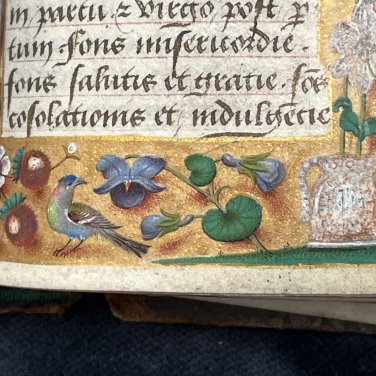 in partu · ⁊ virgo post p̄
tum · fons misericordie ·
fons salutis et gratie · fōs
cōsolationis et indulgēcie